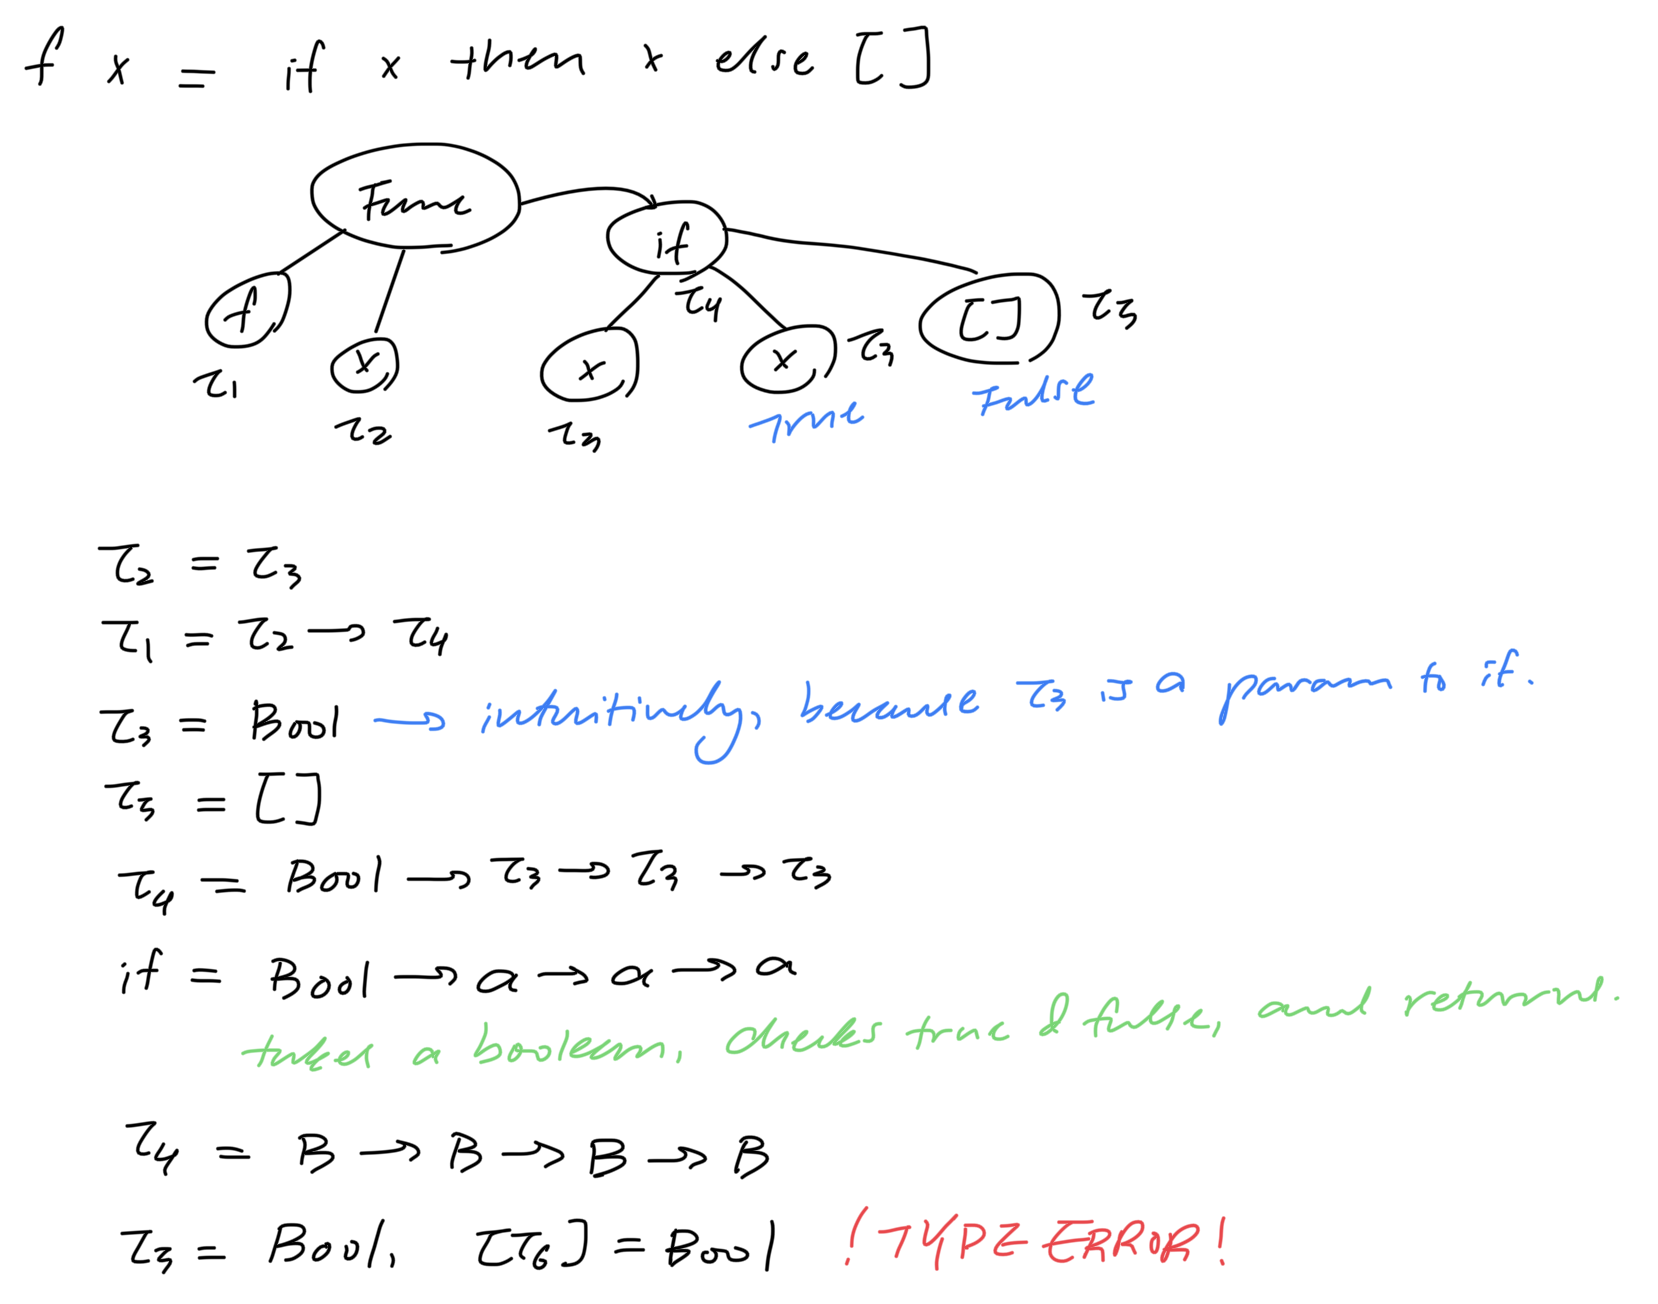 f x = if x then x else []
Func
if
τ4
f
τ1
x
τ2
x
τ3
x τ3
True
[] τ5
False
τ2 = τ3
τ1 = τ2 → τ4
τ3 = Bool → intuitively, because τ3 is a param to if.
τ5 = []
τ4 = Bool → τ3 → τ3 → τ3
if = Bool → a → a → a
takes a boolean, checks true & false, and returns.
τ4 = B → B → B → B
τ5 = Bool, [τ6] = Bool !TYPE ERROR!